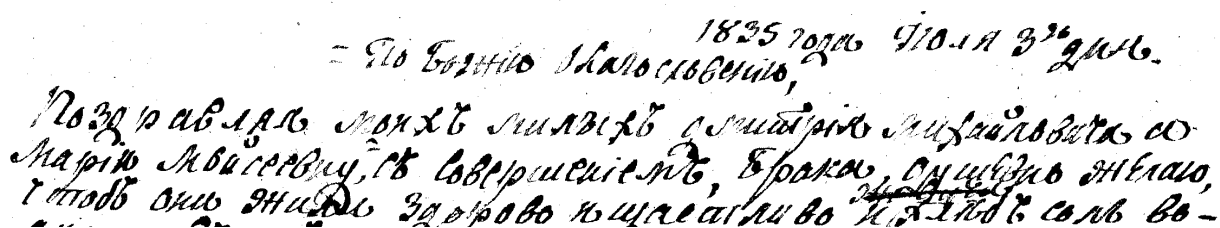 1835 года Июля 3го дня.
= По Божию благословению,
Поздравляя моихъ милыхъ Дмитрія Михайловича и
Марію Мойсеевну, съ совершеніемъ, брака, душевно желаю,
чтобъ они жили здорово и щастливо